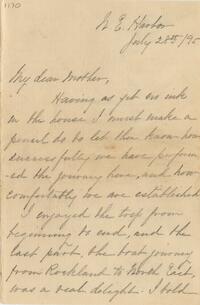 1170
N. E. Harbor
July 28th/95
My dear Mother,
Having as yet no ink
in the house I must make a
pencil do to let thee know how
successfully we have perform-
ed the journey here, and how
comfortably we are established
I enjoyed the trip from
beginning to end, and the
last part, the boat journey
from Rockland to North East,
was a real delight. I told